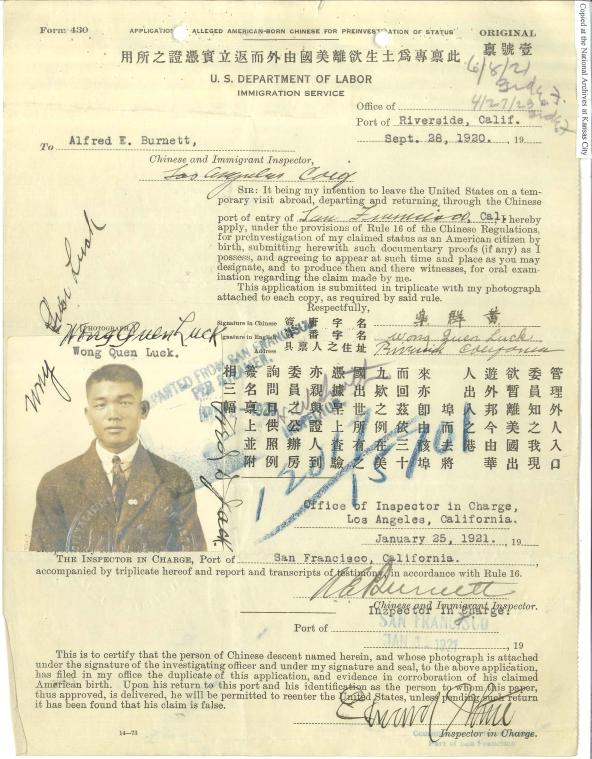 Form 430
APPLICATION ALLEGED AMERICAN-BORN CHINESE FOR PREINVESTIGATION OF STATUS
ORIGINAL
用所之證憑實立返而外由國美離欲生土為專禀此
壹號禀
6/8/21
4/27/23
U. S. DEPARTMENT OF LABOR
IMMIGRATION SERVICE
Office of
Port of Riverside, Calif.
Sept. 28, 1920. , 19
To Alfred E. Burnett,
Chinese and Immigrant Inspector,
Los Angeles Calif
SIR: It being my intention to leave the United States on a tem-
porary visit abroad, departing and returning through the Chinese
port of entry of San Francisco, Cal, hereby
apply, under the provisions of Rule 16 of the Chinese Regulations,
for preinvestigation of my claimed status as an American citizen by
birth, submitting herewith such documentary proofs (if any) as I
possess, and agreeing to appear at such time and place as you may
designate, and to produce then and there witnesses, for oral exam-
ination regarding the claim made by me.
This application is submitted in triplicate with my photograph
attached to each copy, as required by said rule.
Respectfully,
Signature in Chinese
Signature in English Wong Quen Luck
Address Riverside California
PHOTOGRAPH
Wong Quen Luck
Wong Quen Luck.
管理外人入口
委員知我現
欲暫離國出
遊外邦今由美華
人出入之港
埠而法將
來亦卽該埠
而回茲依三十
九欵例
國出世所有之
憑據至上查驗
委員與證人到
詢問日公辦房
簽名口供例
相三幅上並照附
Office of Inspector in Charge,
Los Angeles, California.
January 25, 1921. , 19
THE INSPECTOR IN CHARGE, Port of San Francisco, California. ,
accompanied by triplicate hereof and report and transcripts of testimony, in accordance with Rule 16.
A E Burnett
Chinese and Immigrant Inspector.
Inspector in Charge.
SAN FRANCISCO
Port of
, 19
This is to certify that the person of Chinese descent named herein, and whose photograph is attached
under the signature of the investigating officer and under my signature and seal, to the above application,
has filed in my office the duplicate of this application, and evidence in corroboration of his claimed
American birth. Upon his return to this port and his identification as the person to whom this paper,
thus approved, is delivered, he will be permitted to reenter the United States, unless pending such return
it has been found that his claim is false.
Inspector in Charge.
Port of San Francisco
14-73
Copied at the National Archives at Kansas City